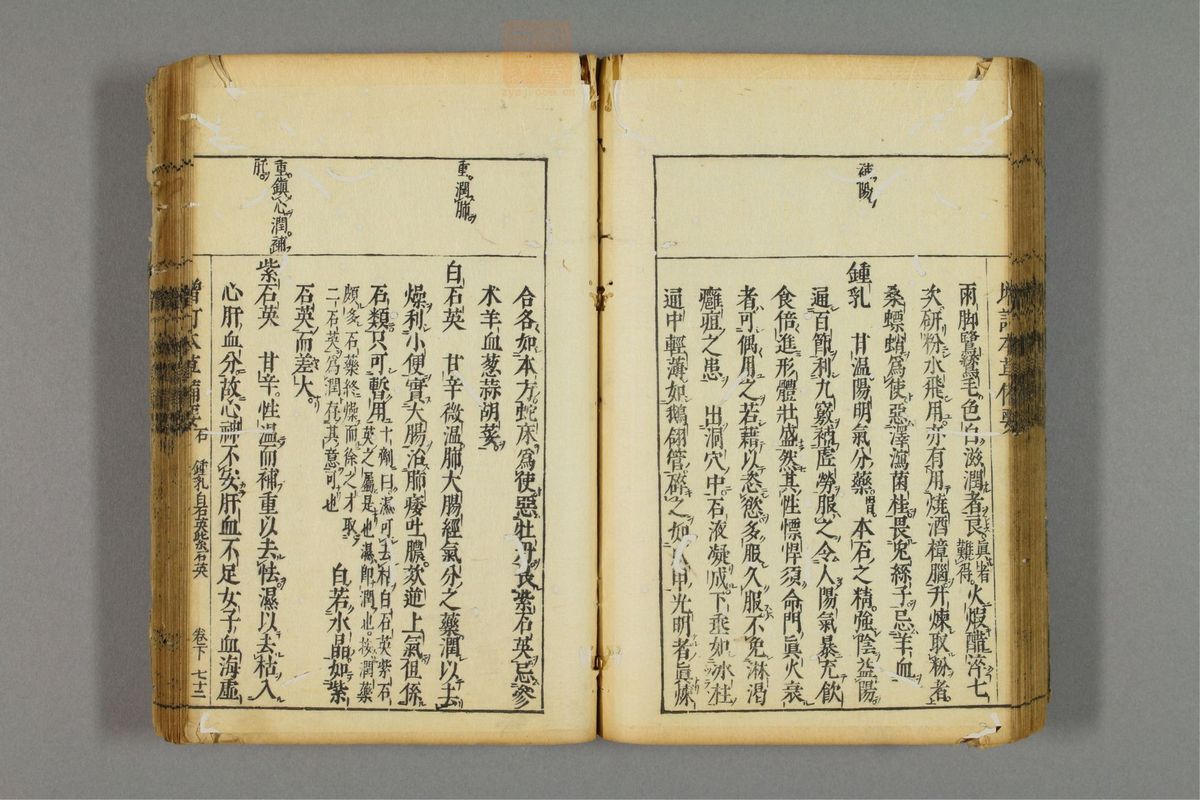 兩脚鷺鷥毛色白滋潤者良眞者難得火煆醋淬七
次研粉水飛用亦有用燒酒樟腦升煉取粉者
桑螵蛸爲使惡澤瀉菌桂畏兔絲子忌羊血
鍾乳 甘溫陽明氣分藥胃本石之精強陰益陽
通百節利九竅補虛勞服之令人陽氣暴充飲
食倍進形體壯盛然其性慓悍須命門眞火衰
者可偶用之若藉以恣慾多服久服不免淋渴
癰疽之患 出洞穴中石液凝成下垂如冰柱
通中輕薄如鵝翎管碎之如爪甲光明者眞煉
補陽
合各如本方蛇床爲使惡牡丹畏紫石英忌參
朮羊血葱蒜胡荽
白石英 甘辛微溫肺大腸經氣分之藥潤以去
燥利小便實大腸治肺痿吐膿欬逆上氣但係
石類只可暫用十劑曰濕可去枯白石英紫石
英之屬是也濕卽潤也按潤藥
頗多石藥終燥而徐之才取
二石英爲潤存其意可也
白若水晶如紫
石英而差大
紫石英 甘辛性溫而補重以去怯濕以去枯入
心肝血分故心神不安肝血不足女子血海虛
重潤肺
重鎮心潤補
肝
增訂本草備要 石 鍾乳白石英紫石英 卷下 七十二